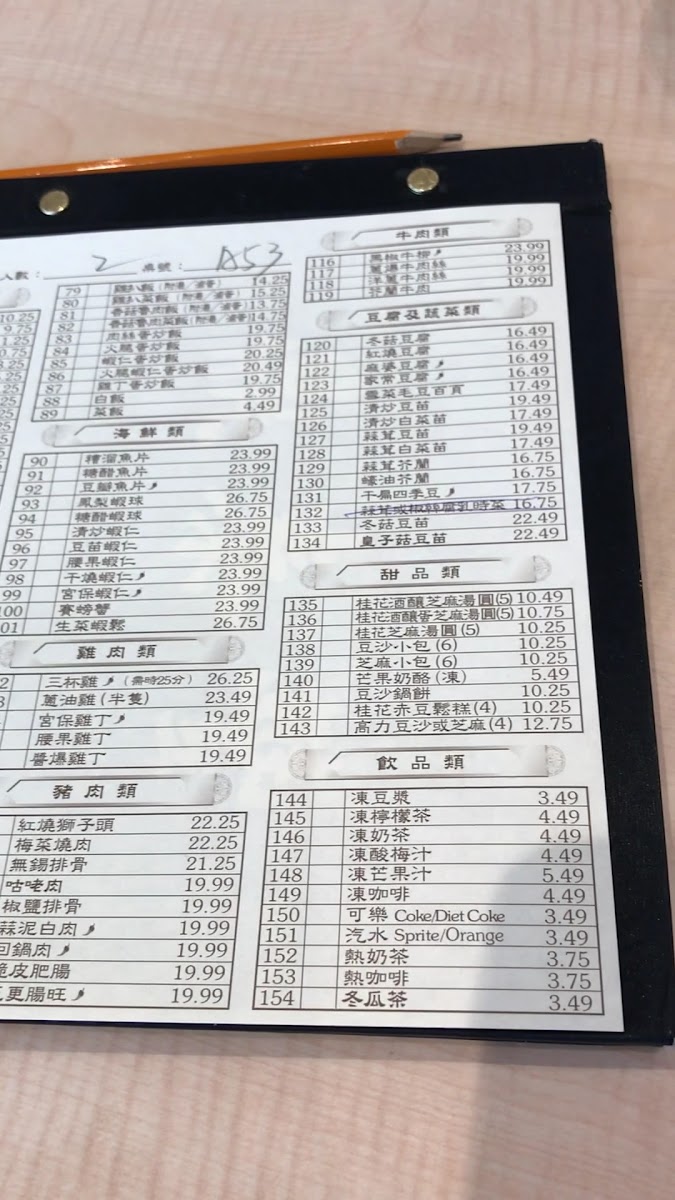 人數: 2 桌號: A53
10.25
9.75
79 雞扒飯 (附湯/滷蛋) 14.25
80 雞扒菜飯 (附湯/滷蛋) 15.25
81 香菇魯肉飯 (附湯/滷蛋) 13.75
82 香菇魯肉菜飯 (附湯/滷蛋) 14.75
83 肉絲蛋炒飯 19.75
84 火腿蛋炒飯 19.75
85 蝦仁蛋炒飯 20.25
86 火腿蝦仁蛋炒飯 20.49
87 雞丁蛋炒飯 19.75
88 白飯 2.99
89 菜飯 4.49
海鮮類
90 糟溜魚片 23.99
91 糖醋魚片 23.99
92 豆瓣魚片 23.99
93 鳳梨蝦球 26.75
94 糖醋蝦球 26.75
95 清炒蝦仁 23.99
96 豆苗蝦仁 23.99
97 腰果蝦仁 23.99
98 干燒蝦仁 23.99
99 宮保蝦仁 23.99
100 賽螃蟹 23.99
01 生菜蝦鬆 26.75
雞肉類
2 三杯雞 (需時25分) 26.25
蔥油雞 (半隻) 23.49
宮保雞丁 19.49
腰果雞丁 19.49
醬爆雞丁 19.49
豬肉類
紅燒獅子頭 22.25
梅菜燒肉 22.25
無錫排骨 21.25
咕咾肉 19.99
椒鹽排骨 19.99
蒜泥白肉 19.99
回鍋肉 19.99
脆皮肥腸 19.99
五更腸旺 19.99
牛肉類
116 黑椒牛柳 23.99
117 蔥爆牛肉絲 19.99
118 洋蔥牛肉絲 19.99
119 芥蘭牛肉 19.99
豆腐及蔬菜類
120 冬菇豆腐 16.49
121 紅燒豆腐 16.49
122 麻婆豆腐 16.49
123 家常豆腐 16.49
124 雪菜毛豆百頁 17.49
125 清炒豆苗 19.49
126 清炒白菜苗 17.49
127 蒜茸豆苗 19.49
128 蒜茸白菜苗 17.49
129 蒜茸芥蘭 16.75
130 蠔油芥蘭 16.75
131 干扁四季豆 17.75
132 蒜茸或椒絲腐乳時菜 16.75
133 冬菇豆苗 22.49
134 皇子菇豆苗 22.49
甜品類
135 桂花酒釀芝麻湯圓(5) 10.49
136 桂花酒釀蛋芝麻湯圓(5) 10.75
137 桂花芝麻湯圓(5) 10.25
138 豆沙小包 (6) 10.25
139 芝麻小包 (6) 10.25
140 芒果奶酪 (凍) 5.49
141 豆沙鍋餅 10.25
142 桂花赤豆鬆糕(4) 10.25
143 高力豆沙或芝麻(4) 12.75
飲品類
144 凍豆漿 3.49
145 凍檸檬茶 4.49
146 凍奶茶 4.49
147 凍酸梅汁 4.49
148 凍芒果汁 5.49
149 凍咖啡 4.49
150 可樂 Coke/Diet Coke 3.49
151 汽水 Sprite/Orange 3.49
152 熱奶茶 3.75
153 熱咖啡 3.75
154 冬瓜茶 3.49